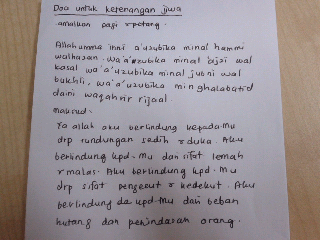 Doa untuk ketenangan jiwa
- amalkan pagi & petang.
Allahumma inni a'uzubika minal hammi
walhazan. wa'a'uzubika minal 'ajzi wal
kasal wa'a'uzubika minal jubni wal
bukhli. wa'a'uzubika min ghalabatid
daini waqahrir rijaal
maksud.
Ya allah aku berlindung kepada Mu
drp rundungan sedih & duka. Aku
berlindung kpd-Mu dari sifat lemah
& malas. Aku berlindung kpd-Mu
drp sifat pengecut & kedekut. Aku
berlindung da kpd-Mu dari beban
hutang dan penindasan orang.